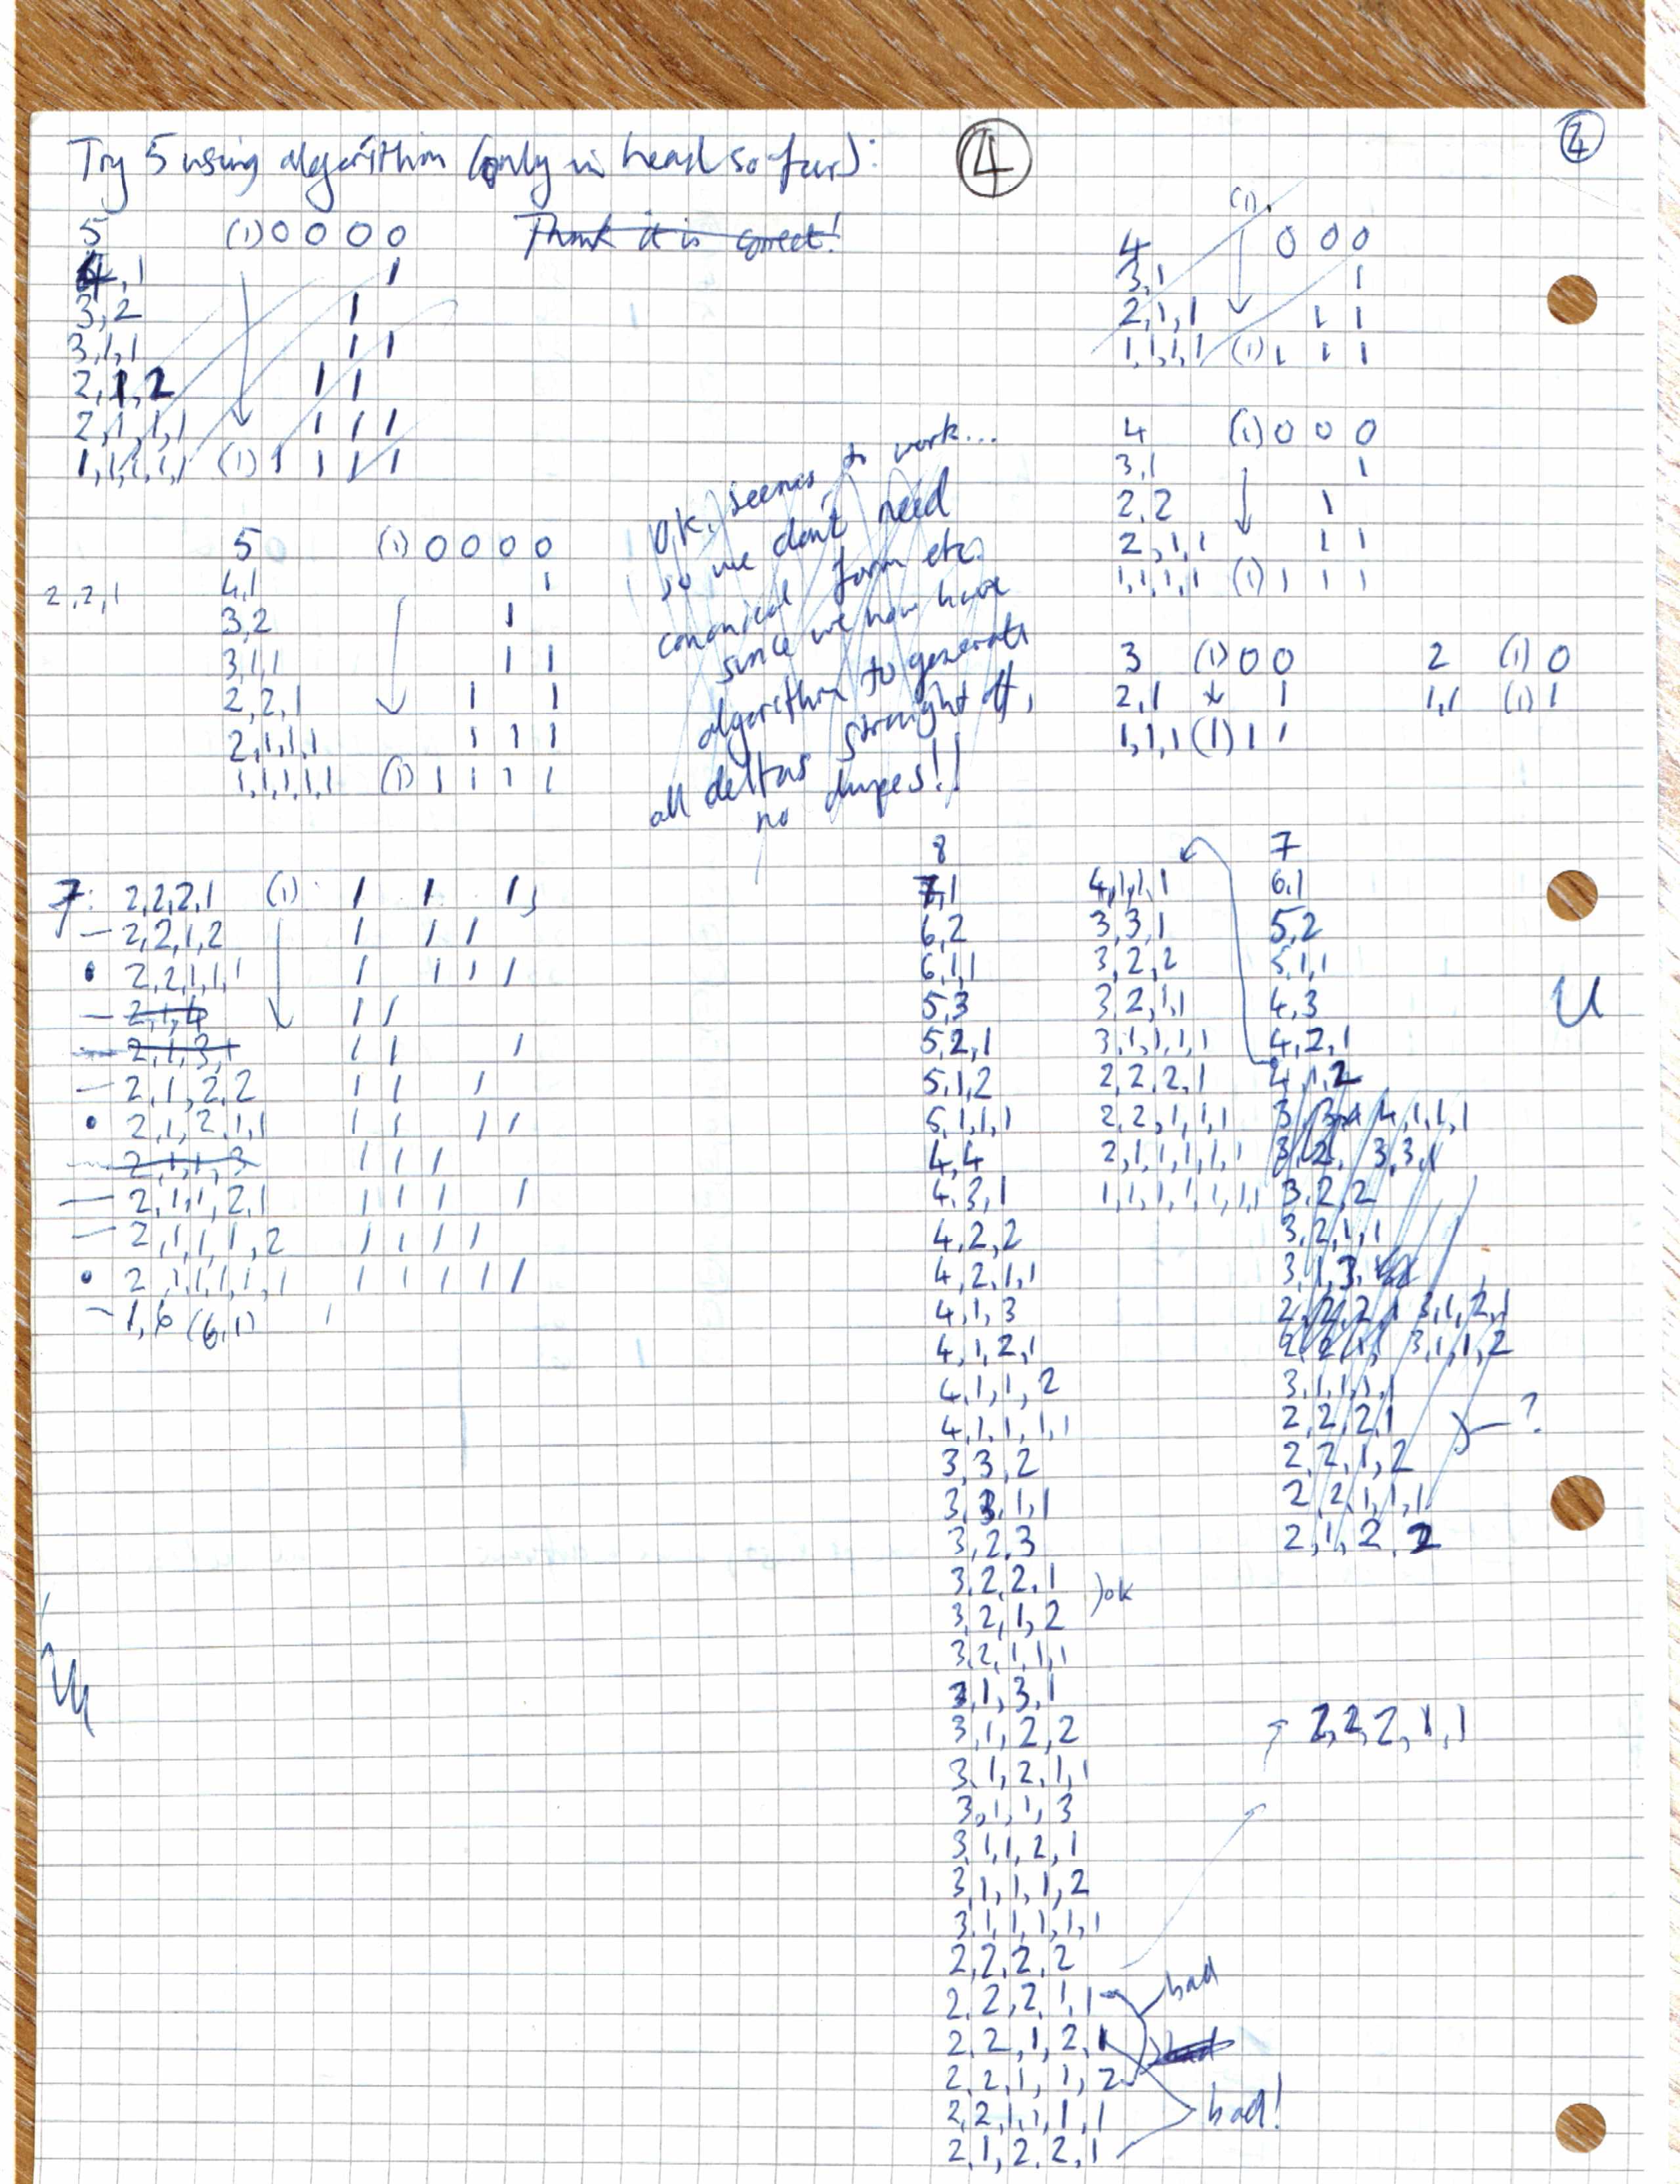 Try 5 using algorithm (only in head so far):
4
4
5 (1) 0 0 0 0
Think it is correct!
4,1 1
3,2 1
3,1,1 1 1
2,1,2 1 1
2,1,1,1 1 1 1
1,1,1,1,1 (1) 1 1 1 1
(1)
4 0 0 0
3,1 1
2,1,1 1 1
1,1,1,1 (1) 1 1 1
4 (1) 0 0 0
3,1 1
2,2 1
2,1,1 1 1
1,1,1,1 (1) 1 1 1
2,2,1
5 (1) 0 0 0 0
4,1 1
3,2 1
3,1,1 1 1
2,2,1 1 1
2,1,1,1 1 1 1
1,1,1,1,1 (1) 1 1 1 1
O.K. seems to work...
so we don't need
canonical form etc.
since we now have
algorithm to generate
all deltas straight off,
no dupes!!
3 (1) 0 0
2,1 1
1,1,1 (1) 1 1
2 (1) 0
1,1 (1) 1
7: 2,2,2,1 (1) 1 1 1
– 2,2,1,2 1 1 1
• 2,2,1,1,1 1 1 1 1
– 2,1,4 1 1
– 2,1,3,1 1 1 1
– 2,1,2,2 1 1 1
• 2,1,2,1,1 1 1 1 1
– 2,1,1,3 1 1 1
– 2,1,1,2,1 1 1 1 1
– 2,1,1,1,2 1 1 1 1
• 2,1,1,1,1,1 1 1 1 1 1
– 1,6 (6,1) 1
8
7,1
6,2
6,1,1
5,3
5,2,1
5,1,2
5,1,1,1
4,4
4,3,1
4,2,2
4,2,1,1
4,1,3
4,1,2,1
4,1,1,2
4,1,1,1,1
3,3,2
3,3,1,1
3,2,3
3,2,2,1
3,2,1,2
)ok
3,2,1,1,1
3,1,3,1
3,1,2,2
3,1,2,1,1
3,1,1,3
3,1,1,2,1
3,1,1,1,2
3,1,1,1,1,1
2,2,2,2
2,2,2,1,1
bad
2,2,1,2,1
bad
2,2,1,1,2
2,2,1,1,1,1
bad!
2,1,2,2,1
4,1,1,1
3,3,1
3,2,2
3,2,1,1
3,1,1,1,1
2,2,2,1
2,2,1,1,1
2,1,1,1,1,1
1,1,1,1,1,1,1
7
6,1
5,2
5,1,1
4,3
4,2,1
4,1,2
4,1,1,1
3,3,1
3,2,2
3,2,1,1
3,1,3
3,1,2,1
3,1,1,2
3,1,1,1,1
2,2,2,1
?
2,2,1,2
2,2,1,1,1
2,1,2,2
2,2,2,1,1